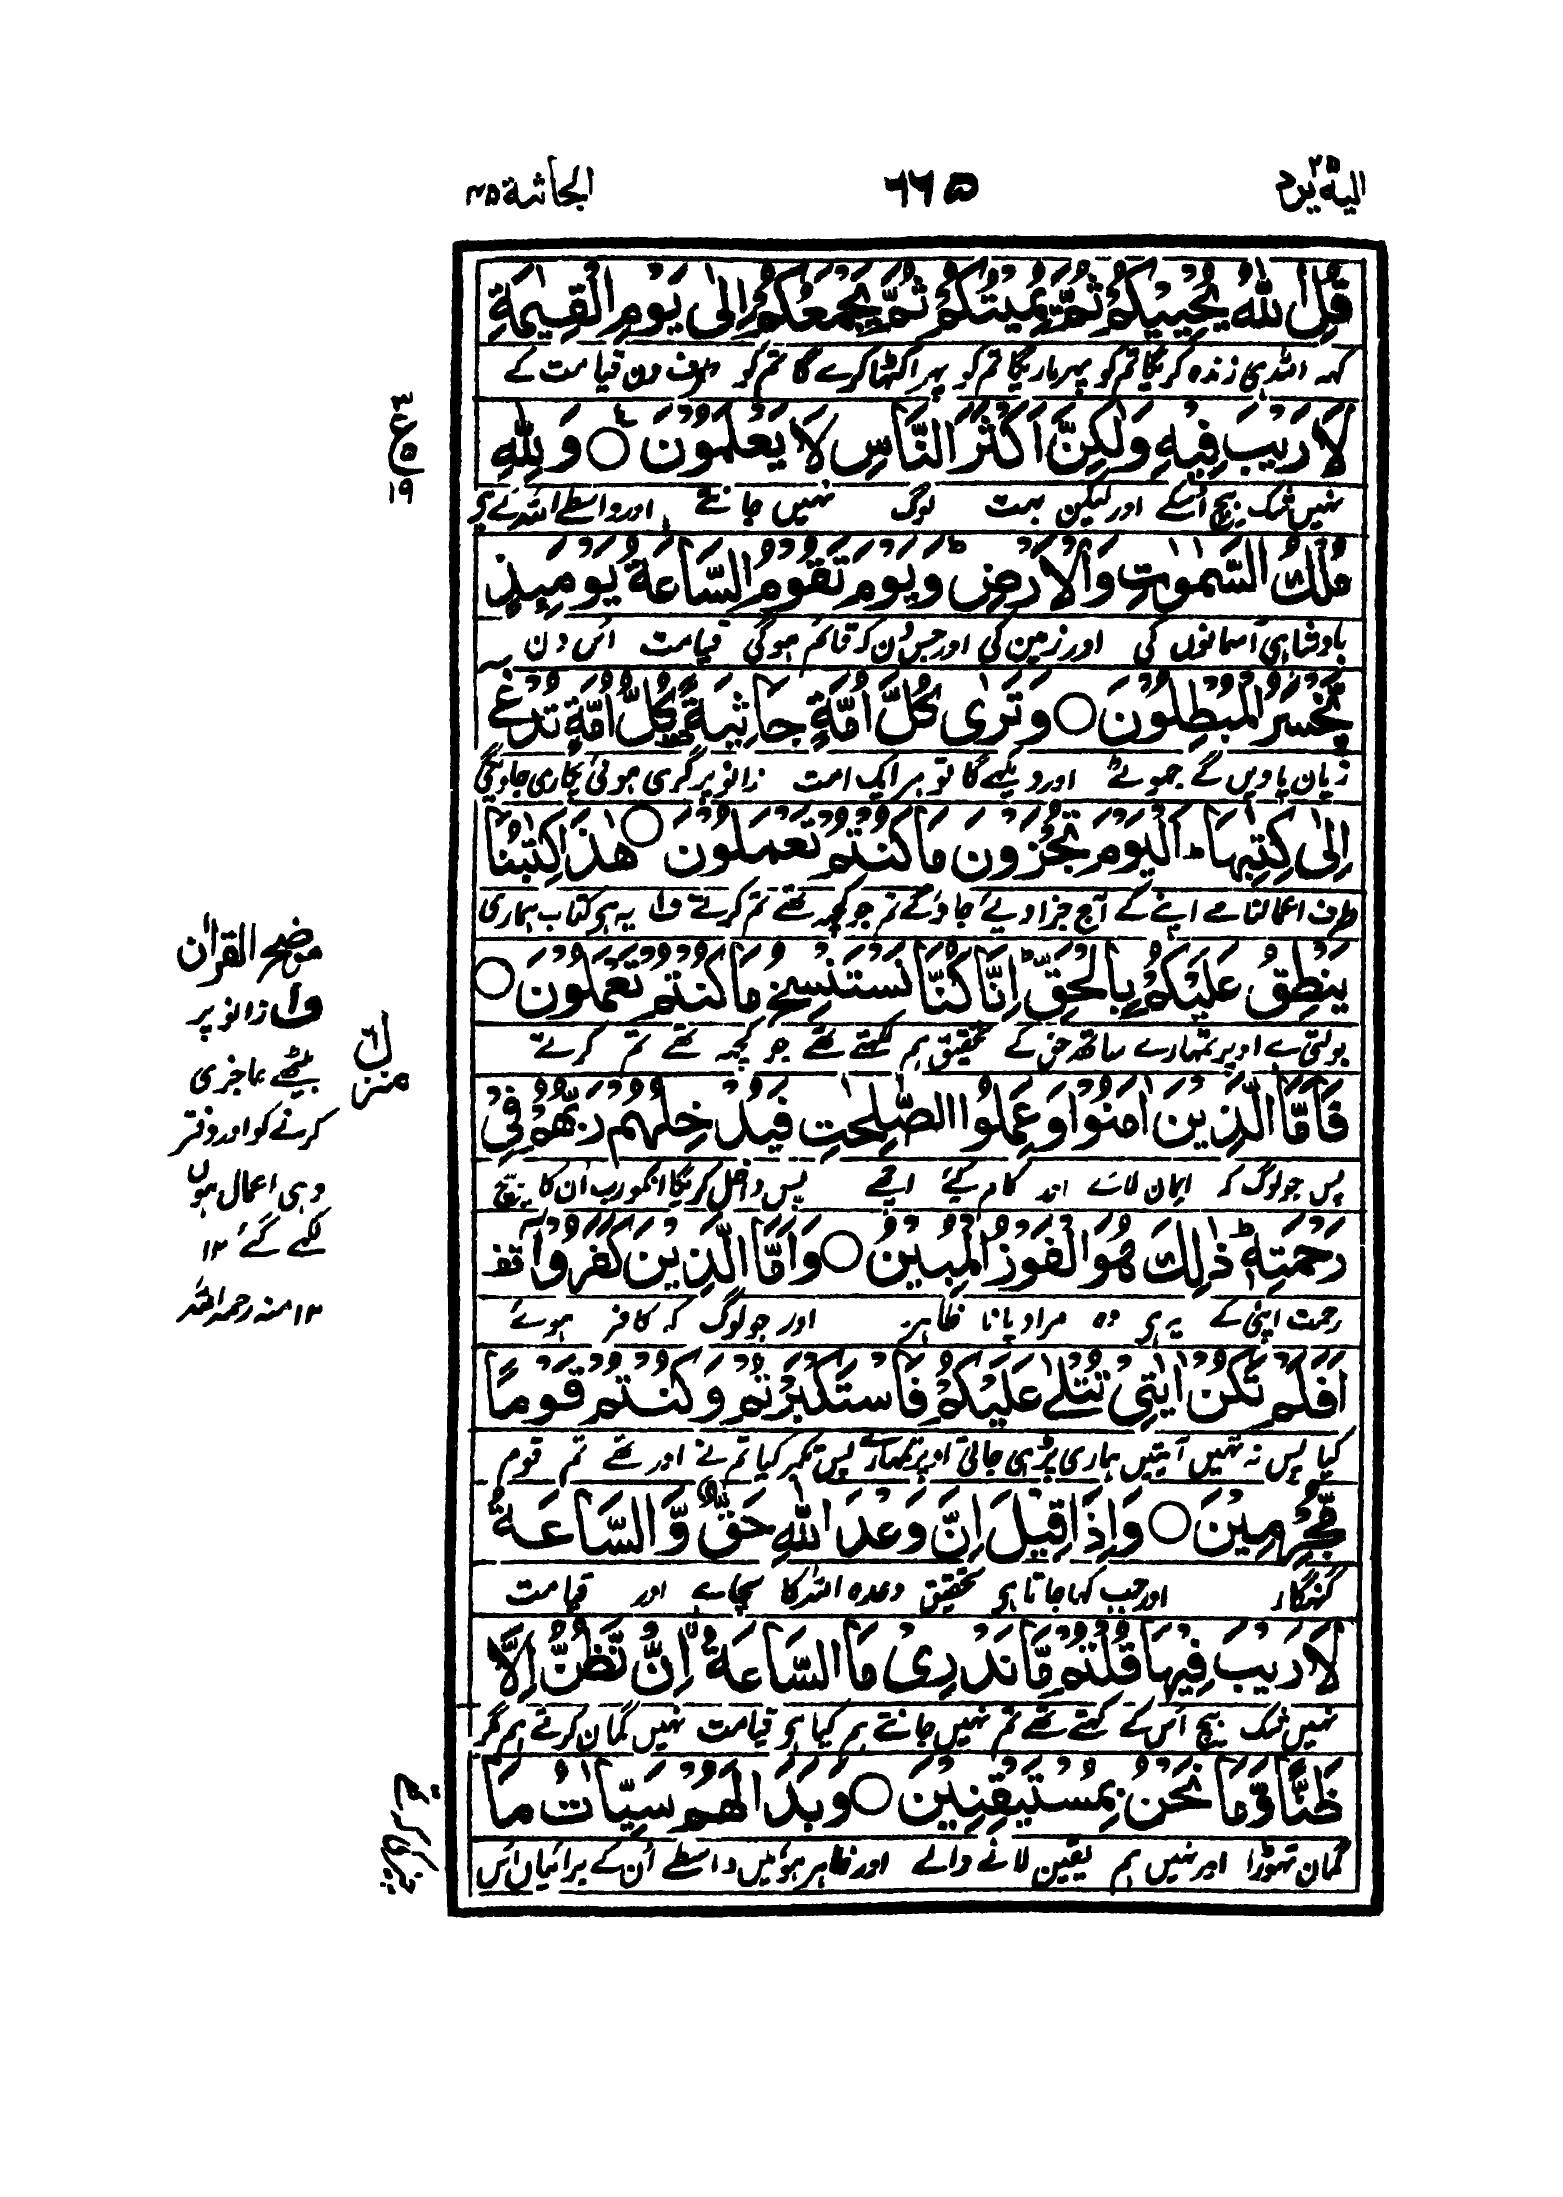 الیہ یرد ۲۵
۶۶۵
الجاثیة ۴۵
قُلِ اللّٰهُ يُحْيِيْكُمْ ثُمَّ يُمِيْتُكُمْ ثُمَّ يَجْمَعُكُمْ اِلٰى يَوْمِ الْقِيٰمَةِ
کہہ اللہ ہی زندہ کریگا تم کو پہر ماریگا تم کو پہر اکٹھا کرے گا تم کو طرف دن قیامت کے
لَا رَيْبَ فِيْهِ وَلٰكِنَّ اَكْثَرَ النَّاسِ لَا يَعْلَمُوْنَ ۝ وَ لِلّٰهِ
نہیں شک بیچ اُسکے اور لیکن بہت لوگ نہیں جانتے اور واسطے اللہ کے ہی
مُلْكُ السَّمٰوٰتِ وَالْاَرْضِ ؕ وَيَوْمَ تَقُوْمُ السَّاعَةُ يَوْمَىِٕذٍ
بادشاہی آسمانوں کی اور زمین کی اور جس دن کہ قائم ہوگی قیامت اُس دن
يَّخْسَرُ الْمُبْطِلُوْنَ ۝ وَ تَرٰى كُلَّ اُمَّةٍ جَاثِيَةً كُلُّ اُمَّةٍ تُدْعٰٓى
زیان پاویں گے جھوٹے اور دیکھے گا تو ہر ایک امت زانو پر گری ہوئی پکاری جاویگی
اِلٰى كِتٰبِهَا ؕ اَلْيَوْمَ تُجْزَوْنَ مَا كُنْتُمْ تَعْمَلُوْنَ ۝ هٰذَا كِتٰبُنَا
طرف اعمالنامے اپنے کے آج جزا دیئے جاؤگے تم جو کچھ تھے تم کرتے ف۱ یہ ہی کتاب ہماری
يَنْطِقُ عَلَيْكُمْ بِالْحَقِّ ؕ اِنَّا كُنَّا نَسْتَنْسِخُ مَا كُنْتُمْ تَعْمَلُوْنَ ۝
بولتی ہے اوپر تمہارے ساتھ حق کے تحقیق ہم لکھتے تھے جو کچھ تھے تم کرتے
فَاَمَّا الَّذِيْنَ اٰمَنُوْا وَعَمِلُوا الصّٰلِحٰتِ فَيُدْخِلُهُمْ رَبُّهُمْ فِيْ
پس جو لوگ کہ ایمان لائے اور کام کیئے اچھے پس داخل کریگا انکو رب اُن کا بیچ
رَحْمَتِهٖ ؕ ذٰلِكَ هُوَ الْفَوْزُ الْمُبِيْنُ ۝ وَاَمَّا الَّذِيْنَ كَفَرُوْا
رحمت اپنی کے یہ ہی وہ مراد پانا ظاہر اور جو لوگ کہ کافر ہوئے
اَفَلَمْ تَكُنْ اٰيٰتِيْ تُتْلٰى عَلَيْكُمْ فَاسْتَكْبَرْتُمْ وَكُنْتُمْ قَوْمًا
کیا پس نہ تھیں آیتیں ہماری پڑھی جاتی اوپر تمہارے پس تکبر کیا تم نے اور تھے تم قوم
مُّجْرِمِيْنَ ۝ وَاِذَا قِيْلَ اِنَّ وَعْدَ اللّٰهِ حَقٌّ وَّ السَّاعَةُ
گنہگار اور جب کہا جاتا ہی تحقیق وعدہ اللہ کا سچا ہے اور قیامت
لَا رَيْبَ فِيْهَا قُلْتُمْ مَّا نَدْرِيْ مَا السَّاعَةُ اِنْ نَّظُنُّ اِلَّا
نہیں شک بیچ اُس کے کہتے تھے تم نہیں جانتے ہم کیا ہی قیامت نہیں گمان کرتے ہم مگر
ظَنًّا وَّمَا نَحْنُ بِمُسْتَيْقِنِيْنَ ۝ وَبَدَا لَهُمْ سَيِّاٰتُ مَا
گمان تھوڑا اور نہیں ہم یقین لانے والے اور ظاہر ہوئیں واسطے اُن کے برائیاں اُس
۳
ع
۵
۱۹
موضح القرآن
ف۱ زانو پر
بیٹھے عاجزی
کرنے کو اور دفتر
وہی اعمال ہوں
لکھے گئے ۱۲
۱۲ منہ رحمہ اللہ
منزل ۶